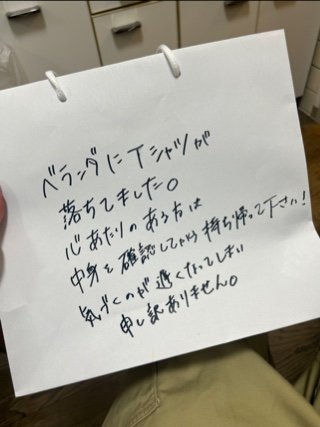 ベランダにTシャツが
落ちてました。
心あたりのある方は
中身を確認してから持ち帰って下さい!
気づくのが遅くなってしまい
申し訳ありません。